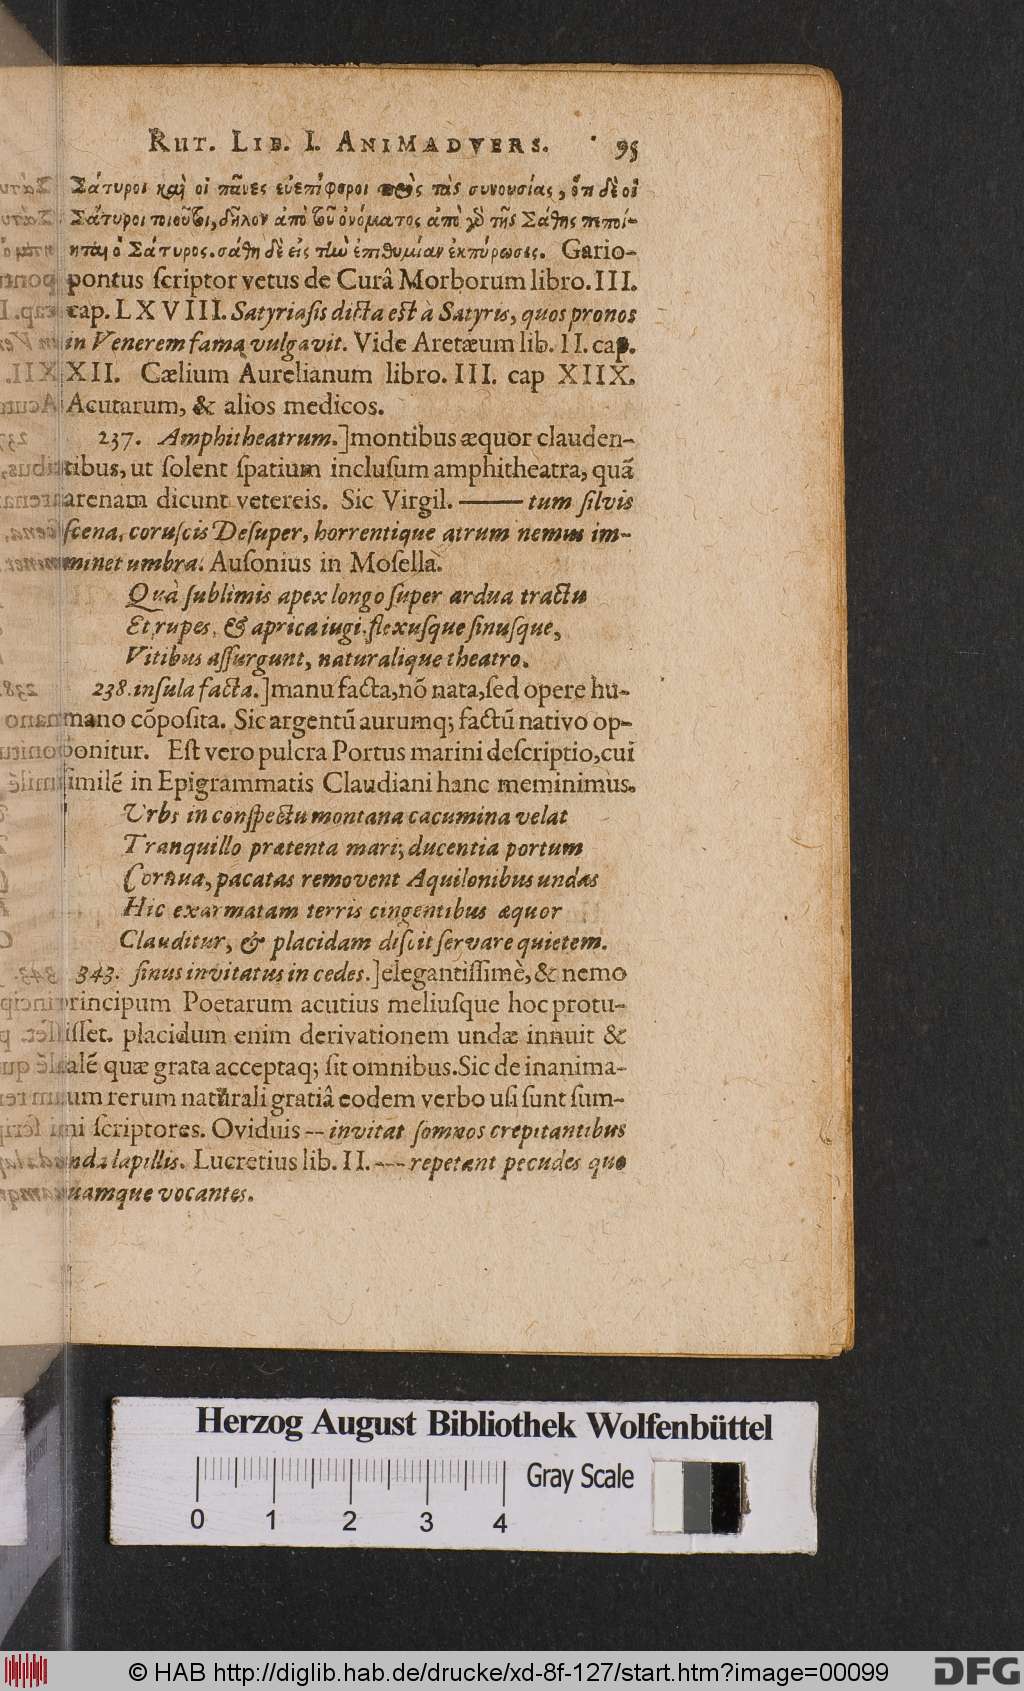 RUT. LIB. I. ANIMADVERS. 95
Σάτυροι καὶ οἱ πᾶνες εὐεπίφοροι πρὸς τὰς συνουσίας, ὅτι δὲ οἱ
Σάτυροι ποιοῦσι, δῆλον ἀπὸ τοῦ ὀνόματος ἀπὸ γὸ τῆς Σάθης πεποί-
ηται ὁ Σάτυρος. σάθη δὲ εἰς τὴν ἐπιθυμίαν ἐκπύρωσις. Gario-
pontus ſcriptor vetus de Curâ Morborum libro. III.
cap. LXVIII. Satyriaſis dicta est à Satyris, quos pronos
in Venerem fama vulgavit. Vide Aretæum lib. II. cap.
XII. Cælium Aurelianum libro. III. cap XIIX.
Acutarum, & alios medicos.
237. Amphitheatrum.] montibus æquor clauden-
tibus, ut ſolent ſpatium incluſum amphitheatra, quã
arenam dicunt vetereis. Sic Virgil. —— tum ſilvis
ſcena, coruſcis Deſuper, horrentique atrum nemus im-
minet umbra. Auſonius in Moſella.
Quà ſublimis apex longo ſuper ardua tractu
Et rupes, & aprica iugi, flexuſque ſinuſque,
Vitibus aſſurgunt, naturalique theatro.
238. inſula facta.] manu facta, nõ nata, ſed opere hu-
mano cõpoſita. Sic argentũ aurumq; factũ nativo op-
ponitur. Eſt vero pulcra Portus marini deſcriptio, cui
ſimilẽ in Epigrammatis Claudiani hanc meminimus.
Urbs in conſpectu montana cacumina velat
Tranquillo prætenta mari; ducentia portum
Cornua, pacatas removent Aquilonibus undas
Hic exarmatam terris cingentibus æquor
Clauditur, & placidam diſcit ſervare quietem.
343. ſinus invitatus in cedes.] elegantiſſimè, & nemo
principum Poetarum acutius meliuſque hoc protu-
iſſet. placidum enim derivationem undæ innuit &
talẽ quæ grata acceptaq; ſit omnibus. Sic de inanima-
tum rerum naturali gratiâ eodem verbo uſi ſunt ſum-
mi ſcriptores. Oviduis -- invitat ſomnos crepitantibus
unda lapillis. Lucretius lib. II. --- repetant pecudes quo
quamque vocantes.
Herzog August Bibliothek Wolfenbüttel
Gray Scale
0 1 2 3 4
© HAB http://diglib.hab.de/drucke/xd-8f-127/start.htm?image=00099
DFG